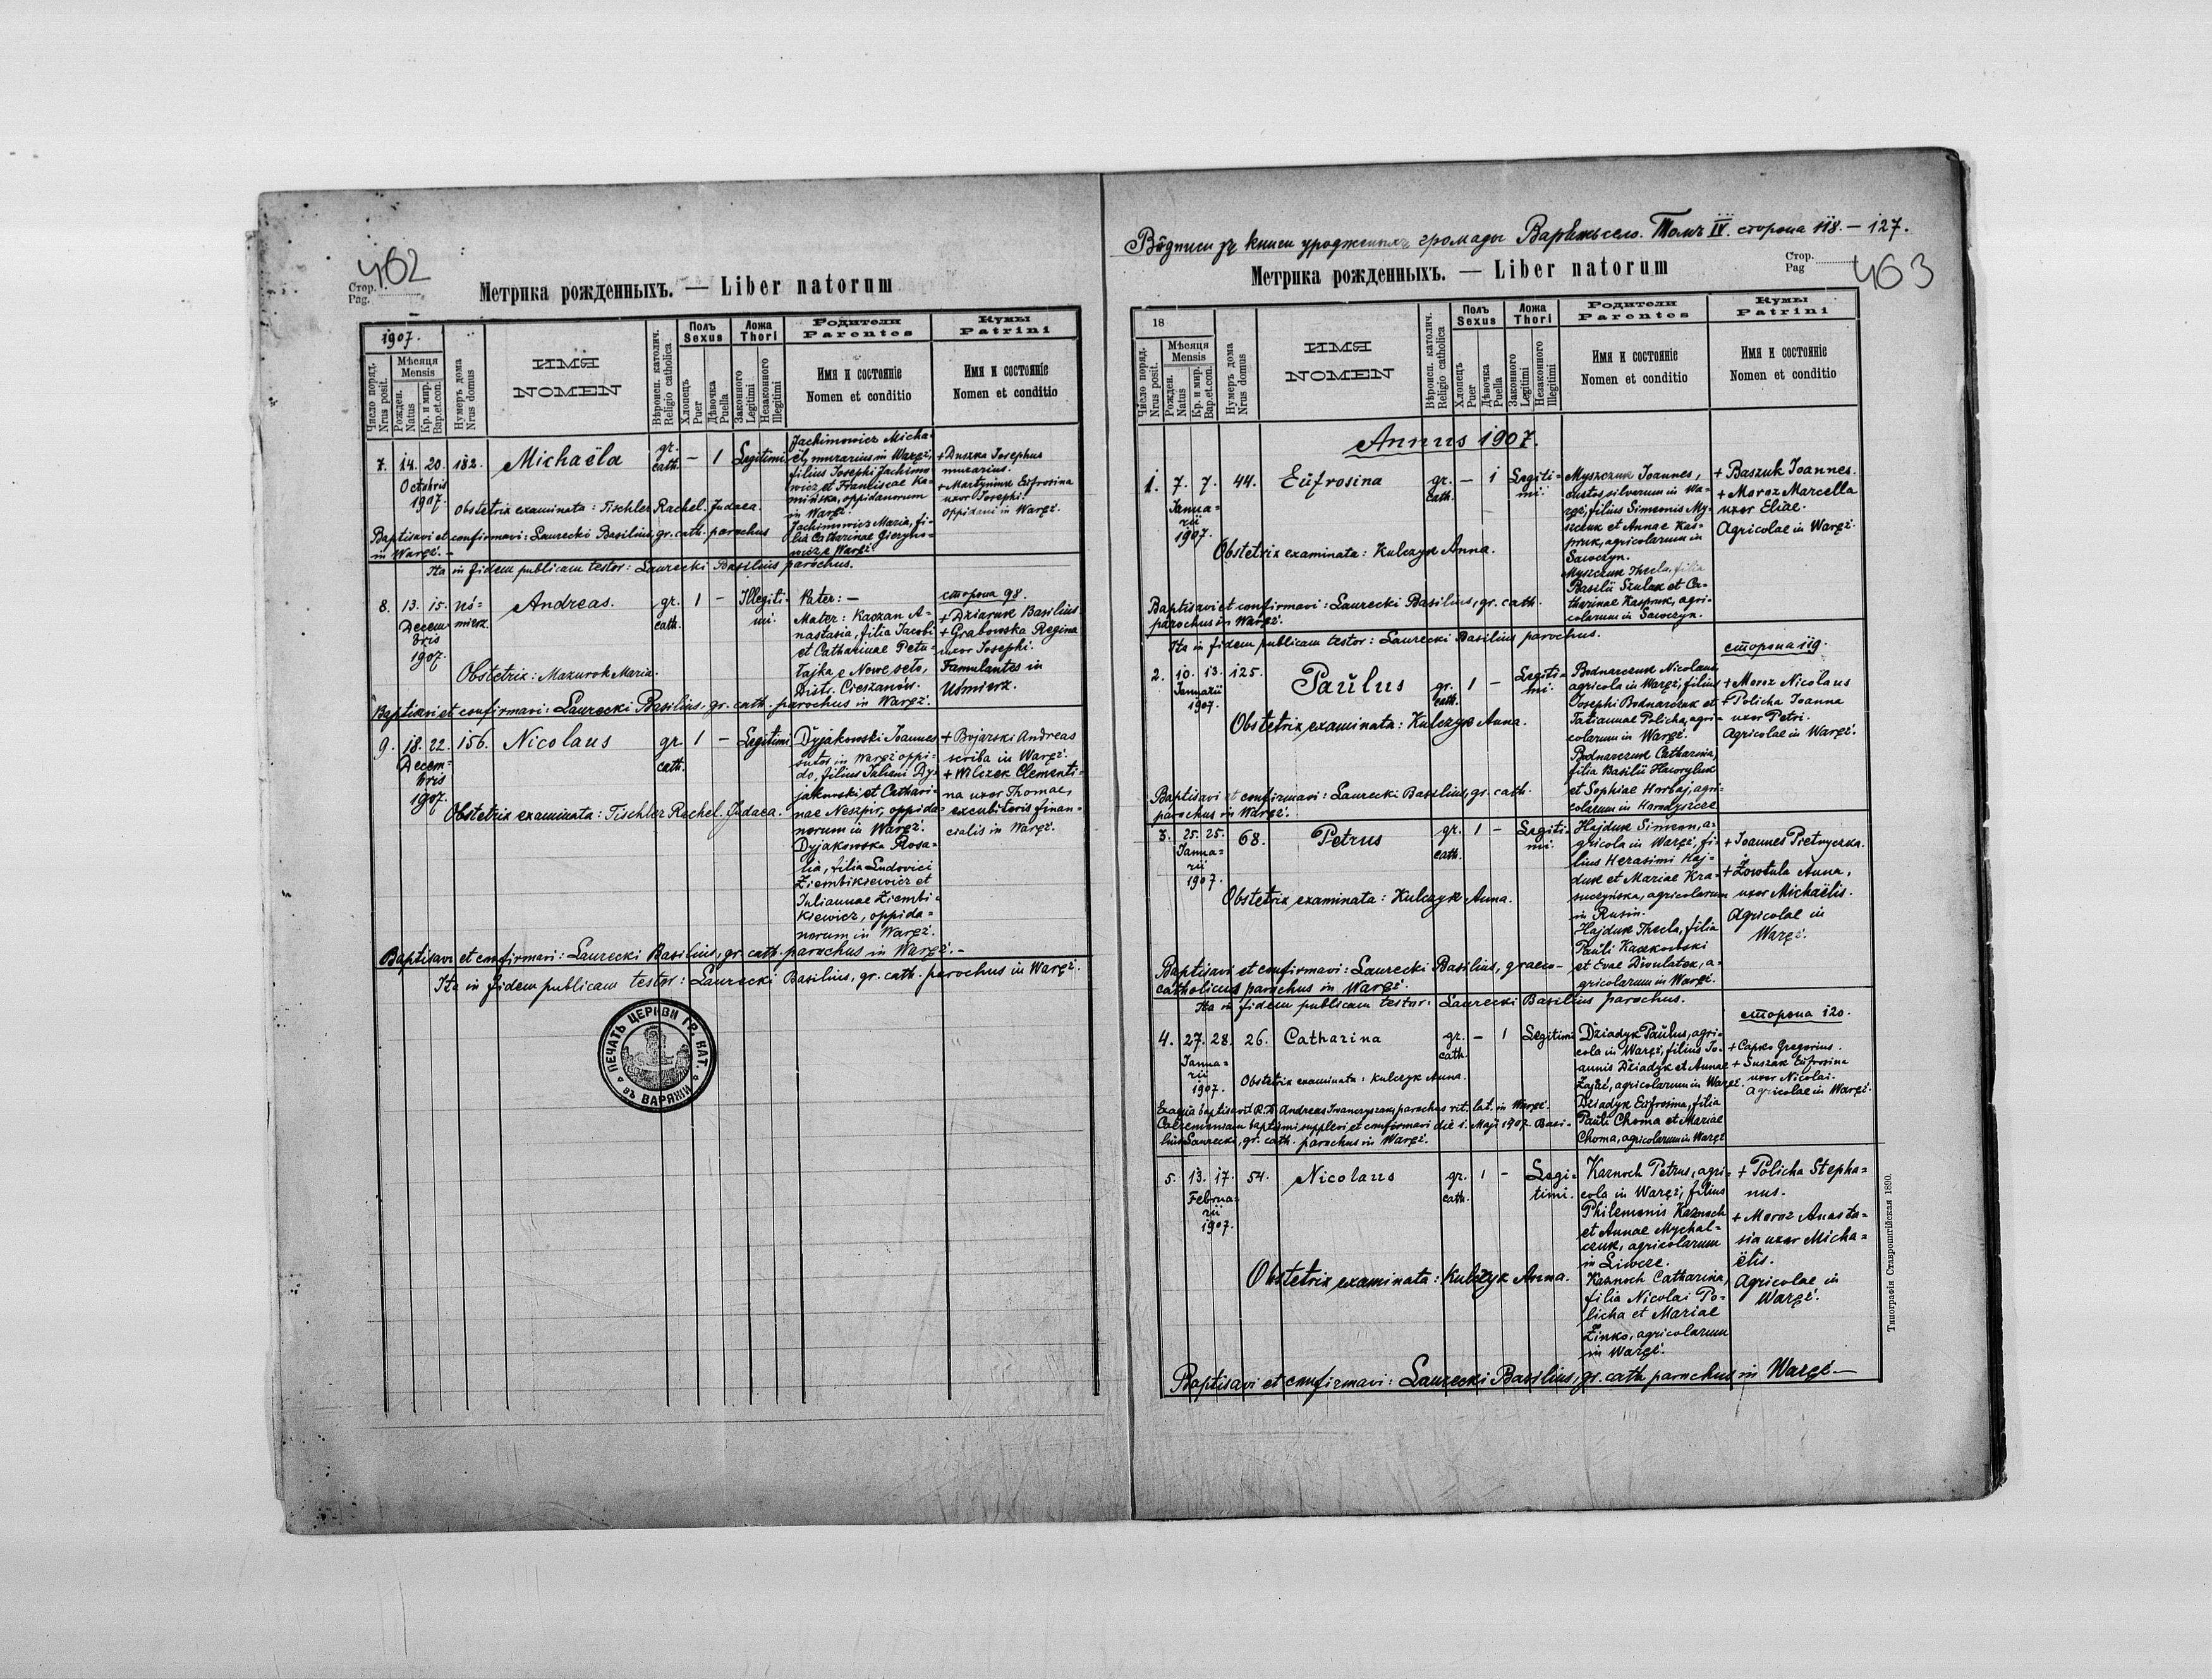 462
Стор.
Pag.
Метрика рожденныхъ. — Liber natorum
1907.
Число поряд.
Nrus posit.
Мѣсяця
Mensis
Рожден.
Natus
Кр. и мир.
Bap.et.con.
Нумеръ дома
Nrus domus
ИМЯ
NOMEN
Вѣроисп. католич.
Religio catholica
Полъ
Sexus
Хлопецъ
Puer
Дѣвочка
Puella
Ложа
Thori
Законного
Legitimi
Незаконного
Illegitimi
Родители
Parentes
Имя и состояніе
Nomen et conditio
Кумы
Patrini
Имя и состояніе
Nomen et conditio
7. 14. 20. 182. Michaëla gr. cath. — 1 Legitimi
Octobris
1907.
Jachimowicz Micha-
ël, murarius in Waręż,
filius Josephi Jachimo
wicz et Franciscae Ka-
mińska, oppidanorum
in Waręż.
Jachimowicz Maria, fi-
lia Catharinae
wicz e Waręż
+ Duszka Josephus
murarius.
+ Martyniuk Eufrosina
uxor Josephi.
oppidani in Waręż.
Obstetrix examinata: Tischler Rachel. Judaea.
Baptisavi et confirmavi: Laurecki Basilius, gr. cath. parochus
in Waręż. —
Ita in fidem publicam testor: Laurecki Basilius parochus.
8. 13. 15. uś= Andreas. gr. 1 — Illegiti-
Decem mierz. cath. mi.
bris
1907.
Pater: —
Mater: Kaczan A-
nastasia, filia Jacobi
et Catharinae Petu-
Tajka e Nowe seło,
Distr. Cieszanów.
сторона 98.
+ Dziaruk Basilius
+ Grabowska Regina
uxor Josephi.
Famulantes in
Uśmierz.
Obstetrix: Mazurok Maria.
Baptisavi et confirmavi: Laurecki Basilius, gr. cath. parochus in Waręż.
9. 18. 22. 156. Nicolaus gr. 1 — Legitimi
Decem= cath.
bris
1907.
Dyjakowski Joannes
sutor in Waręż oppi-
do, filius Juliani Dy=
jakowski et Cathari-
nae Neszpir, oppida=
norum in Waręż.
Dyjakowska Rosa=
lia, filia Ludovici
Ziembikiewicz et
Juliannae Ziembi=
kiewicz, oppida=
norum in Waręż.
+ Bojarski Andreas
scriba in Waręż.
+ Wilczek Clementi=
na uxor Thomae,
excubitoris finan=
cialis in Waręż.
Obstetrix examinata: Tischler Rachel. Judaea.
Baptisavi et confirmavi: Laurecki Basilius, gr. cath. parochus in Waręż. —
Ita in fidem publicam testor: Laurecki Basilius, gr. cath. parochus in Waręż.
ПЕЧАТЬ ЦЕРКВИ ГР. КАТ.
въ ВАРЯЖИ
Вôдписи зъ книги уродженныхъ громады Варяжъ село. Томъ IV. сторона 118. — 127.
Стор.
Pag
463
Метрика рожденныхъ. — Liber natorum
18
Число поряд.
Nrus posit.
Мѣсяця
Mensis
Рожден.
Natus
Кр. и мир.
Bap.et.con.
Нумеръ дома
Nrus domus
ИМЯ
NOMEN
Вѣроисп. католич.
Religio catholica
Полъ
Sexus
Хлопецъ
Puer
Дѣвочка
Puella
Ложа
Thori
Законного
Legitimi
Незаконного
Illegitimi
Родители
Parentes
Имя и состояніе
Nomen et conditio
Кумы
Patrini
Имя и состояніе
Nomen et conditio
Annus 1907.
1. 7. 7. 44. Eufrosina gr. — 1 Legiti=
Janua= cath. mi.
rii
1907.
Myszczuk Joannes,
custos silvarum in Wa-
ręż, filius Simeonis My-
szczuk et Annae Kas-
pruk, agricolarum in
Sawczyn.
Myszczuk Thecla, filia
Basilii Szulak et Ca-
tharinae Kaspruk, agri-
colarum in Sawczyn.
+ Baszuk Joannes.
+ Moroz Marcella
uxor Eliae.
Agricolae in Waręż.
Obstetrix examinata: Kulczyk Anna.
Baptisavi et confirmavi: Laurecki Basilius, gr. cath.
parochus in Waręż.
Ita in fidem publicam testor: Laurecki Basilius parochus.
сторона 119.
2. 10. 13. 125. Paulus gr. 1 — Legiti=
Januarii cath. mi.
1907.
Bodnarczuk Nicolaus
agricola in Waręż, filius
Josephi Bodnarczuk et
Tatiannae Policha, agri-
colarum in Waręż.
Bodnarczuk Catharina,
filia Basilii Hawryluk
et Sophiae Horbaj, agri-
colarum in Horodyszcze
+ Moroz Nicolaus
+ Policha Joanna
uxor Petri.
Agricolae in Waręż.
Obstetrix examinata: Kulczyk Anna.
Baptisavi et confirmavi: Laurecki Basilius, gr. cath.
parochus in Waręż.
3. 25. 25. 68. Petrus gr. 1 — Legiti-
Janua= cath. mi.
rii
1907.
Hajduk Simeon, a-
gricola in Waręż, fi-
lius Herasimi Haj-
duk et Mariae Kra-
suczyńska, agricolarum
in Rusin.
Hajduk Thecla, filia
Pauli Kaczkowski
et Evae Diwulatok, a-
gricolarum in Waręż.
+ Joannes Pretnyczka.
+ Żowtula Anna,
uxor Michaëlis.
Agricolae in
Waręż.
Obstetrix examinata: Kulczyk Anna.
Baptisavi et confirmavi: Laurecki Basilius, graeco-
catholicus parochus in Waręż.
Ita in fidem publicam testor: Laurecki Basilius parochus.
сторона 120.
4. 27. 28. 26. Catharina gr. — 1 Legitimi
Janua= cath.
rii
1907.
Dziadyk Paulus, agri-
cola in Waręż, filius Jo-
annis Dziadyk et Annae
Zając, agricolarum in Waręż.
Dziadyk Eufrosina, filia
Pauli Choma et Mariae
Choma, agricolarum in Waręż
+ Capko Gregorius.
+ Suszak Eufrosina
uxor Nicolai.
Agricolae in Waręż.
Obstetrix examinata: Kulczyk Anna.
baptisavit R. D. Andreas Iwanczyszak, parochus rit. lat. in Waręż.
Caeremoniam baptismi supplevi et confirmavi die 1. Maji 1907. Basi-
lius Laurecki, gr. cath. parochus in Waręż.
5. 13. 17. 54. Nicolaus gr. 1 — Legi-
Februa= cath. timi.
rii
1907.
Kaznoch Petrus, agri-
cola in Waręż, filius
Philemonis Kaznoch
et Annae Mychal-
czuk, agricolarum
in Liwcze.
Kaznoch Catharina,
filia Nicolai Po-
licha et Mariae
Zinko, agricolarum
in Waręż.
+ Policha Stepha=
nus.
+ Moroz Anasta=
sia uxor Micha=
ëlis.
Agricolae in
Waręż.
Obstetrix examinata: Kulczyk Anna.
Baptisavi et confirmavi: Laurecki Basilius, gr. cath parochus in Waręż —
Типографія Ставропигійская 1890.